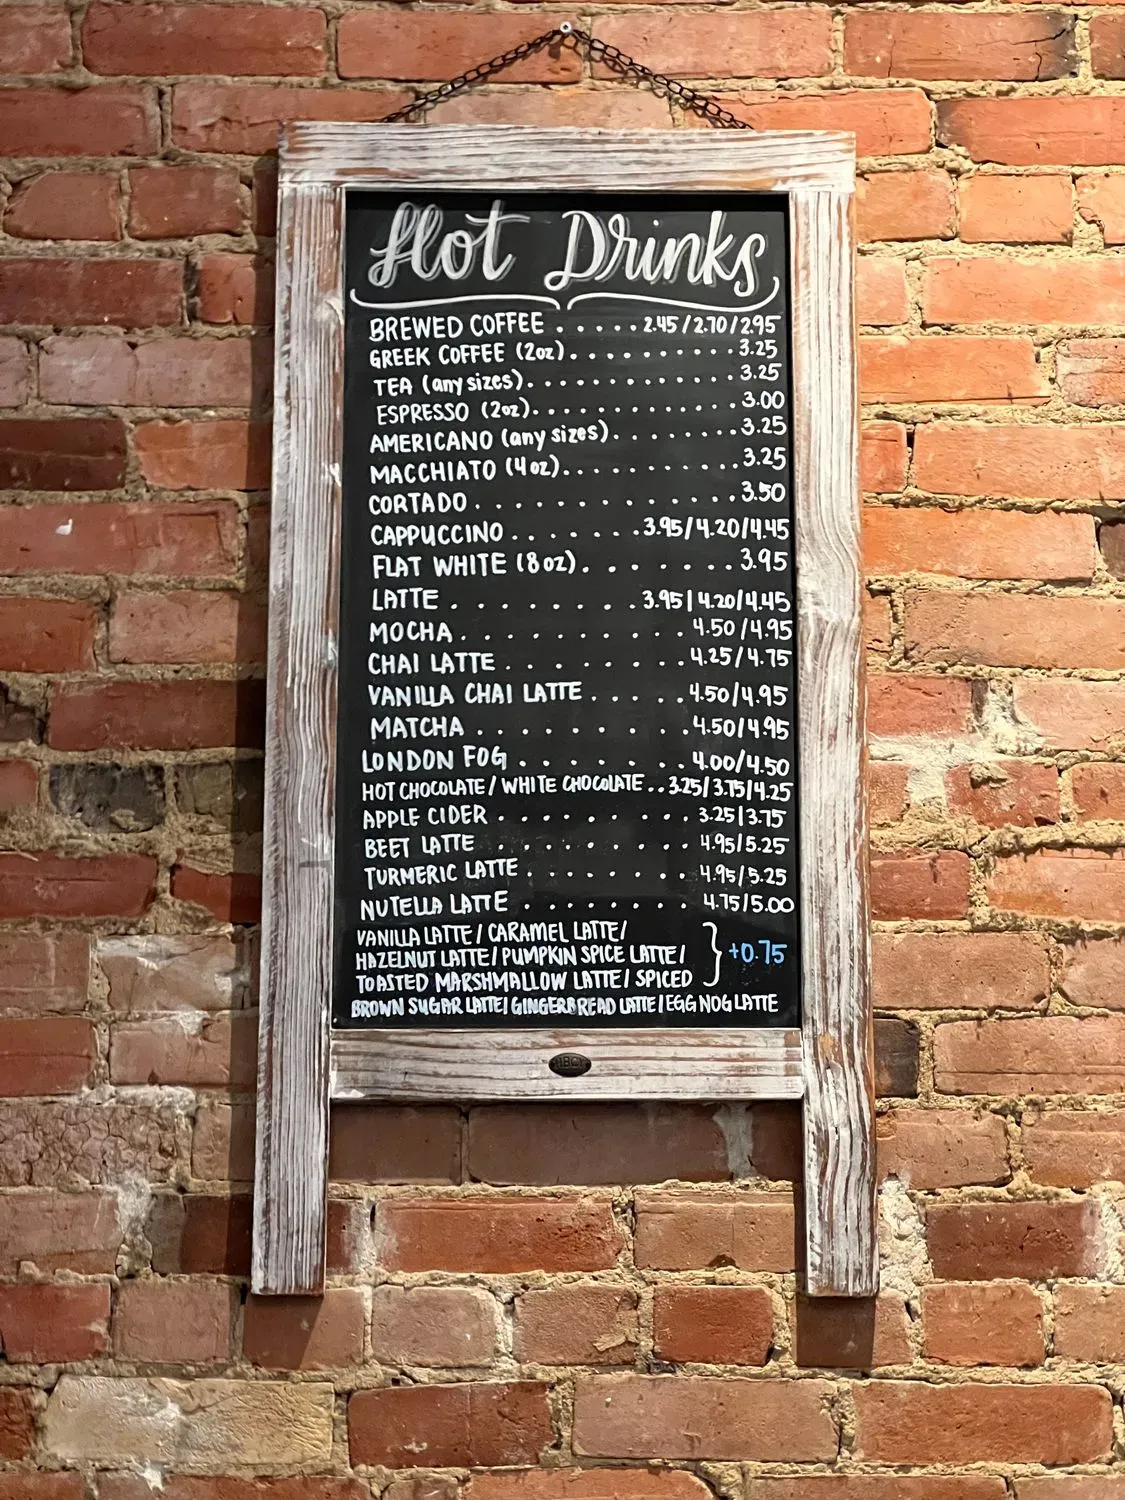 Hot Drinks
BREWED COFFEE . . . . . 2.45 / 2.70 / 2.95
GREEK COFFEE (2oz) . . . . . . . . . . 3.25
TEA (any sizes) . . . . . . . . . . . . . 3.25
ESPRESSO (2oz) . . . . . . . . . . . . . 3.00
AMERICANO (any sizes) . . . . . . . . 3.25
MACCHIATO (4oz) . . . . . . . . . . . 3.25
CORTADO . . . . . . . . . . . . . 3.50
CAPPUCCINO . . . . . . . 3.95/4.20/4.45
FLAT WHITE (8oz) . . . . . . . 3.95
LATTE . . . . . . . . 3.95|4.20/4.45
MOCHA . . . . . . . . . . 4.50/4.95
CHAI LATTE . . . . . . . . 4.25/4.75
VANILLA CHAI LATTE . . . . . 4.50/4.95
MATCHA . . . . . . . . . 4.50/4.95
LONDON FOG . . . . . . . 4.00/4.50
HOT CHOCOLATE / WHITE CHOCOLATE . . 3.25/3.75/4.25
APPLE CIDER . . . . . . . . . 3.25|3.75
BEET LATTE . . . . . . . . . 4.95/5.25
TURMERIC LATTE . . . . . . . . 4.95/5.25
NUTELLA LATTE . . . . . . . . 4.75/5.00
VANILLA LATTE / CARAMEL LATTE /
HAZELNUT LATTE / PUMPKIN SPICE LATTE / } +0.75
TOASTED MARSHMALLOW LATTE / SPICED
BROWN SUGAR LATTE / GINGERBREAD LATTE / EGG NOG LATTE